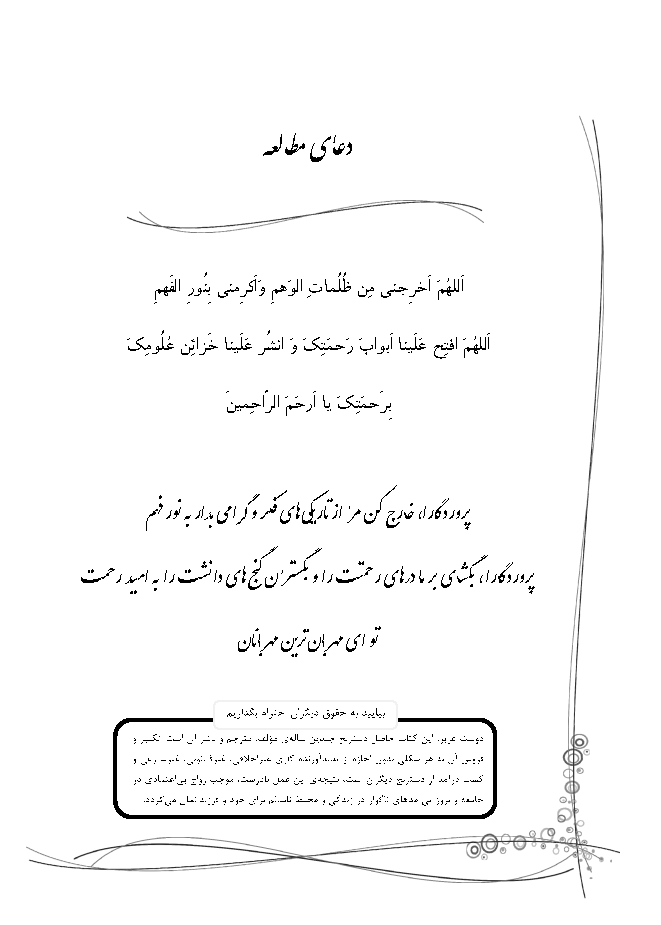 دعای مطالعه
اَللهُمَ اَخرِجنی مِن ظُلُماتِ الوَهمِ وَاَکرِمنی بِنُورِ الفَهمِ
اَللهُمَ افتِح عَلَینا اَبوابَ رَحمَتِکَ وَ انشُر عَلَینا خَزائِن عُلُومِکَ
بِرَحمَتِکَ یا اَرحَمَ الرّاحِمینَ
پروردگارا، خارج کن مرا از تاریکی‌های فکر و گرامی بدار به نور فهم
پروردگارا، بگشای بر ما درهای رحمتت را و بگستران گنج‌های دانشت را به امید رحمت
تو ای مهربان‌ترین مهربانان
بیایید به حقوق دیگران احترام بگذاریم
دوست عزیز، این کتاب حاصل دسترنج چندین ساله‌ی مؤلف، مترجم و ناشر آن است. تکثیر و
فروش آن به هر شکلی بدون اجازه از پدیدآورنده کاری غیراخلاقی، غیرقانونی، غیرشرعی و
کسب درآمد از دسترنج دیگران است. نتیجه‌ی این عمل نادرست، موجب رواج بی‌اعتمادی در
جامعه و بروز پی‌آمدهای ناگوار در زندگی و محیط ناسالم برای خود و فرزندانمان می‌گردد.